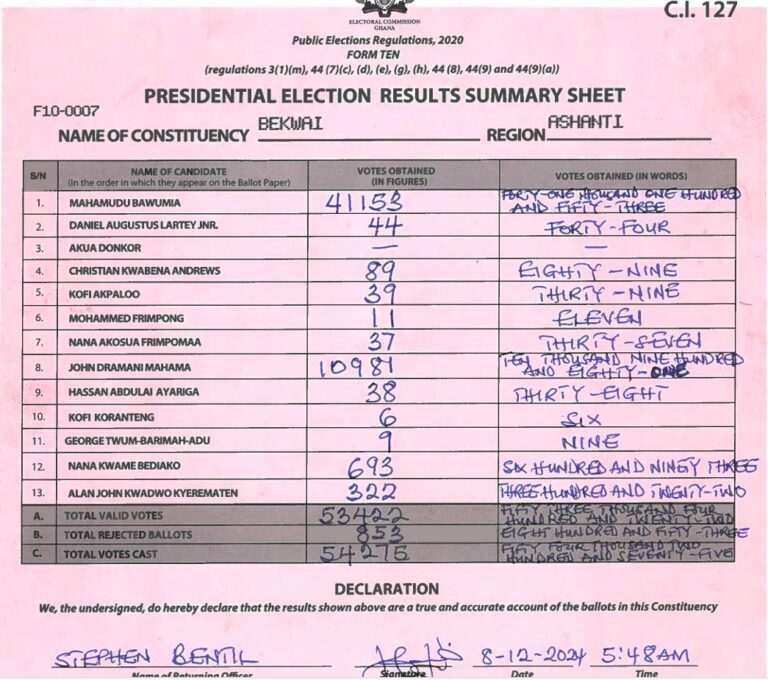 C.I. 127
ELECTORAL COMMISSION
GHANA
Public Elections Regulations, 2020
FORM TEN
(regulations 3(1)(m), 44 (7)(c), (d), (e), (g), (h), 44 (8), 44(9) and 44(9)(a))
PRESIDENTIAL ELECTION RESULTS SUMMARY SHEET
F10-0007
NAME OF CONSTITUENCY BEKWAI REGION ASHANTI
S/N NAME OF CANDIDATE (In the order in which they appear on the Ballot Paper) VOTES OBTAINED (IN FIGURES) VOTES OBTAINED (IN WORDS)
1. MAHAMUDU BAWUMIA 41153 FORTY-ONE THOUSAND ONE HUNDRED AND FIFTY-THREE
2. DANIEL AUGUSTUS LARTEY JNR. 44 FORTY-FOUR
3. AKUA DONKOR — —
4. CHRISTIAN KWABENA ANDREWS 89 EIGHTY-NINE
5. KOFI AKPALOO 39 THIRTY-NINE
6. MOHAMMED FRIMPONG 11 ELEVEN
7. NANA AKOSUA FRIMPOMAA 37 THIRTY-SEVEN
8. JOHN DRAMANI MAHAMA 10981 TEN THOUSAND NINE HUNDRED AND EIGHTY-ONE
9. HASSAN ABDULAI AYARIGA 38 THIRTY-EIGHT
10. KOFI KORANTENG 6 SIX
11. GEORGE TWUM-BARIMAH-ADU 9 NINE
12. NANA KWAME BEDIAKO 693 SIX HUNDRED AND NINETY THREE
13. ALAN JOHN KWADWO KYEREMATEN 322 THREE HUNDRED AND TWENTY-TWO
A. TOTAL VALID VOTES 53422 FIFTY THREE THOUSAND FOUR HUNDRED AND TWENTY-TWO
B. TOTAL REJECTED BALLOTS 853 EIGHT HUNDRED AND FIFTY-THREE
C. TOTAL VOTES CAST 54275 FIFTY FOUR THOUSAND TWO HUNDRED AND SEVENTY-FIVE
DECLARATION
We, the undersigned, do hereby declare that the results shown above are a true and accurate account of the ballots in this Constituency
STEPHEN BENTIL 8-12-2024 5:48AM
Name of Returning Officer Signature Date Time